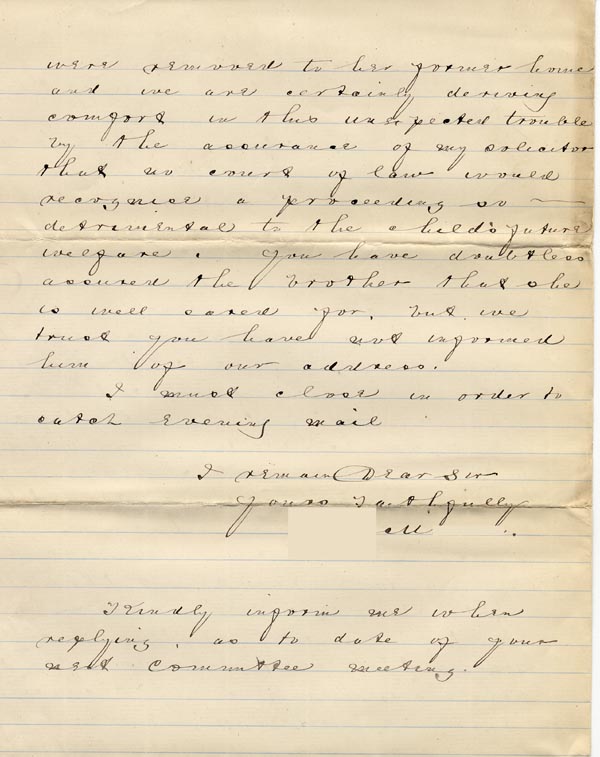 were removed to her former home
and we are certainly deriving
comfort in this unexpected trouble
by the assurance of my solicitor
that no court of law would
recognise a proceeding so —
detrimental to the child's future
welfare. You have doubtless
assured the brother that she
is well cared for, but we
trust you have not informed
him of our address.
I must close in order to
catch evening mail
I remain Dear Sir
Yours Faithfully
M
Kindly inform me when
replying, as to date of your
next Committee meeting.